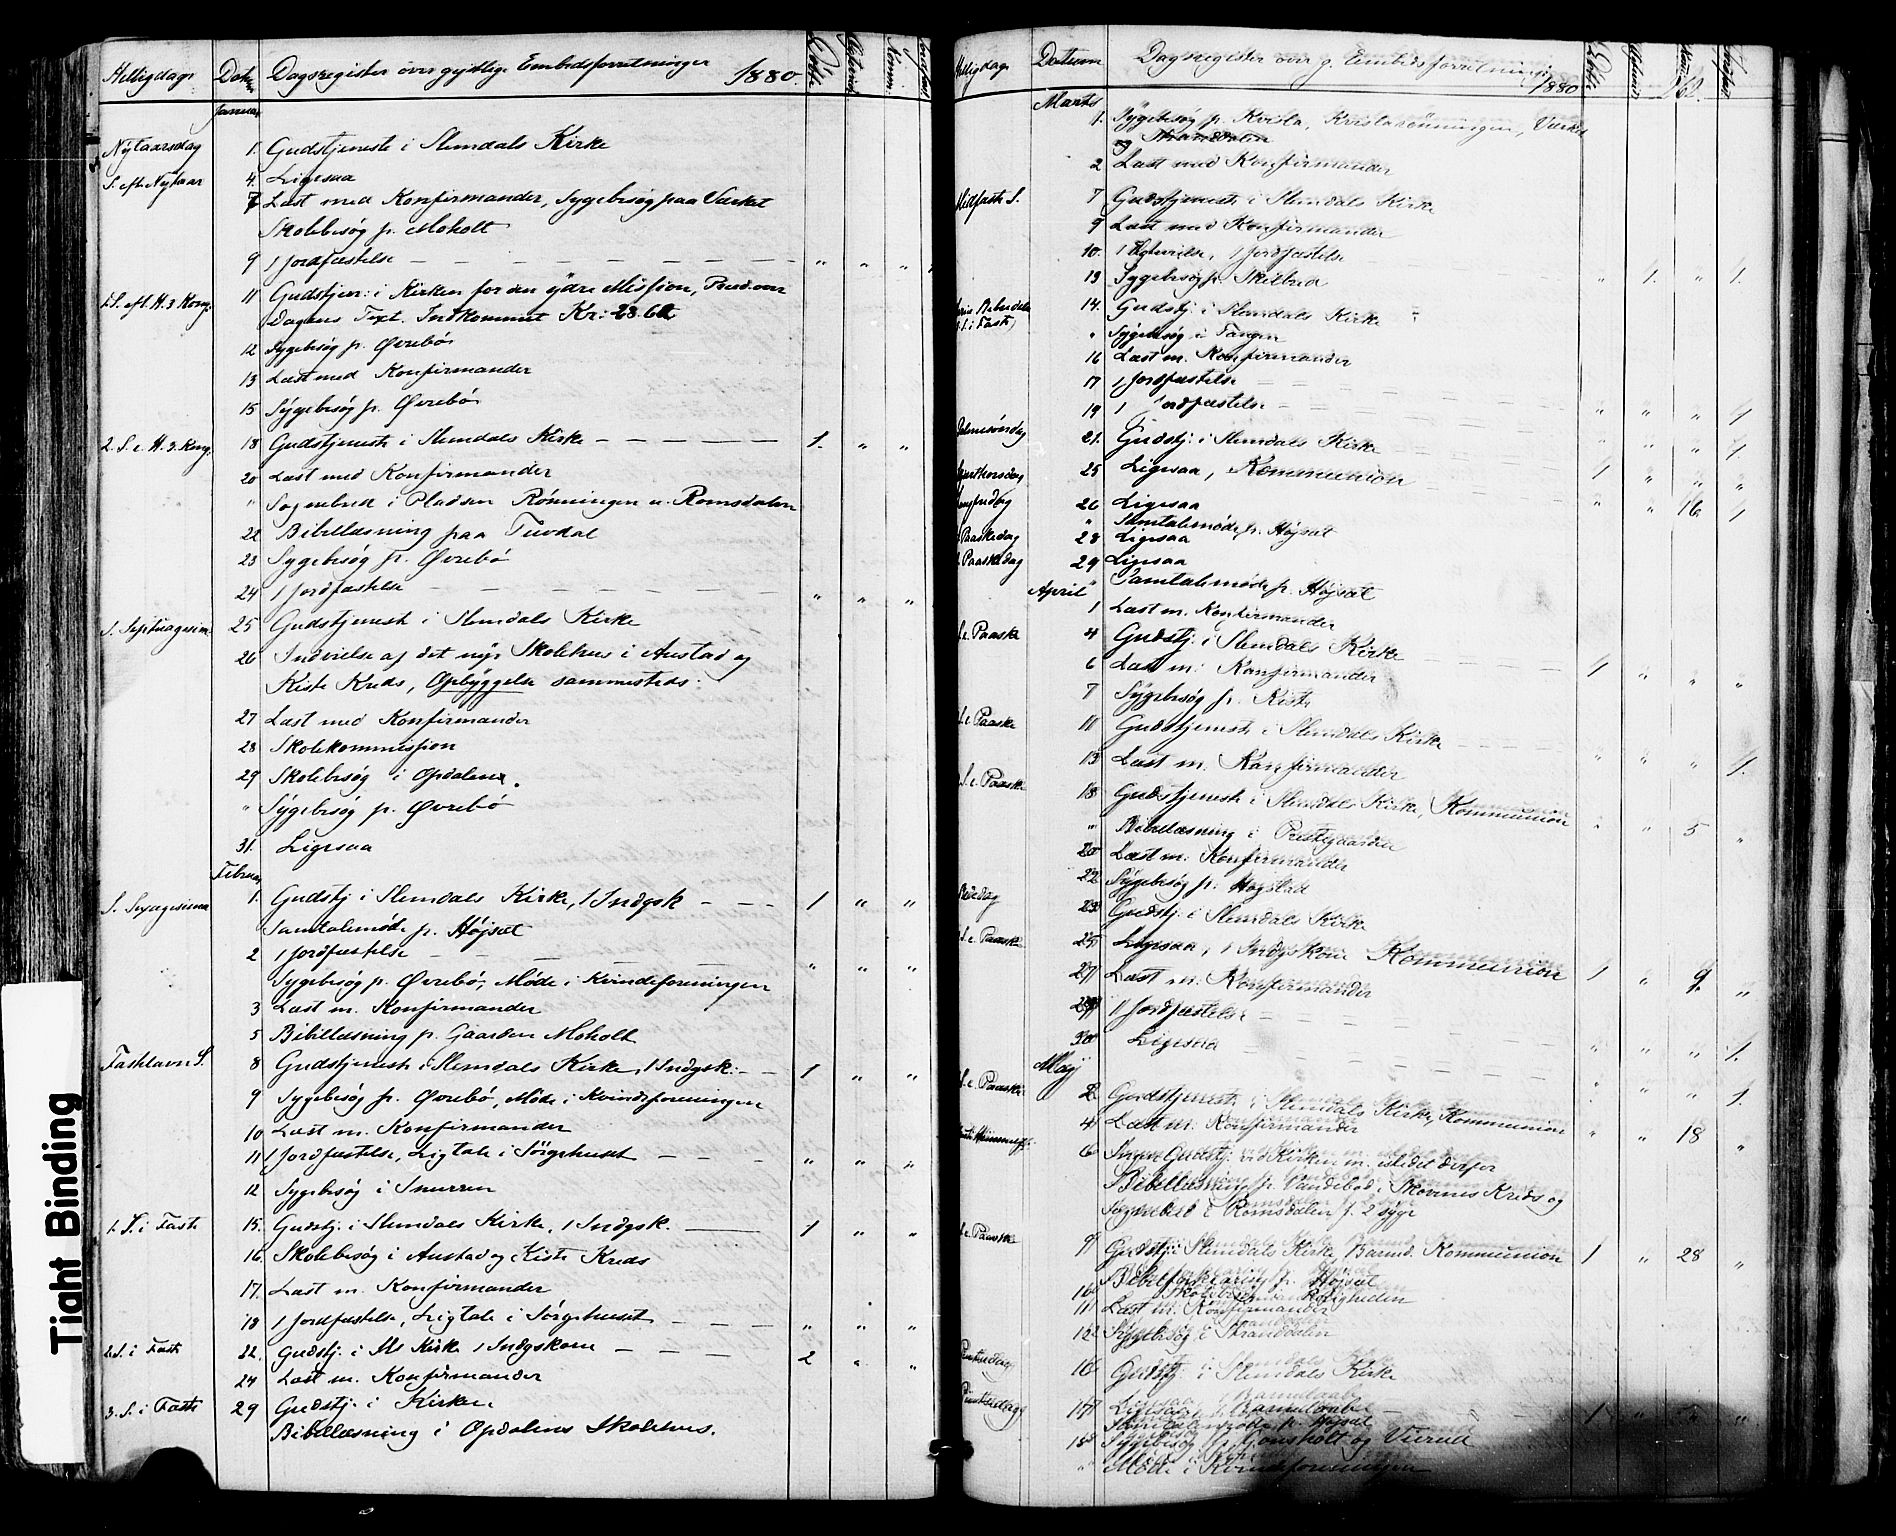 Helligdage Datum Dagsregister over gejstlige Embedsforretninger 1880. Døbte
Januar
Nytaarsdag 1. Gudstjeneste i Slemdals Kirke
S. eft. Nytaar 4. Ligesaa
7 Læst med Konfirmander, Sygebesøg paa Værket
Skolebesøg p. Moholt
9 1 Jordfæstelse — " " " "
1. S. eft. H. 3 Kong. 11 Gudstjen: i Kirken for den ydre Mission, Præd. over
Dagens Text. Indkommet Kr: 23.62
12 Sygebesøg p. Øvrebø
13 Læst med Konfirmander
15 Sygebesøg p. Øvrebø
2. S. e. H. 3. Kong. 18 Gudstjeneste i Slemdals Kirke — 1. " "
20 Læst med Konfirmander
" Sognebud i Pladsen Rønningen u. Romsdalen
22 Bibellæsning paa Tivdal
23 Sygebesøg p. Øvrebø
24 1 Jordfæstelse — " " "
S. Septuagesim. 25 Gudstjeneste i Slemdals Kirke
26 Indvielse af det nye Skolehus i Austad og
Kiste Kreds, Opbyggelse sammesteds.
27 Læst med Konfirmander
28 Skolekommission
29 Skolebesøg i Opdalen.
" Sygebesøg p. Øvrebø
31. Ligesaa
Februar
S. Sexagesima 1. Gudstj i Slemdals Kirke, 1 Indgsk — 1 " "
Samtalemøde p. Højsæt
2 1 Jordfæstelse — " " "
Sygebesøg p. Øvrebø, Møde i Kvindeforeningen
3 Læst m. Konfirmander
5 Bibellæsning p. Gaarden Moholt
Fastelavns S. 8 Gudstjenest i Slemdals Kirke, 1 Indgsk: — 1 " "
9 Sygebesøg p. Øvrebø, Møde i Kvindeforeningen
10 Læst m. Konfirmander
11 1 Jordfæstelse, Ligtale i Sørgehuset — " " "
12 Sygebesøg i Snurren
1. S. i Faste 15. Gudstj. i Slemdals Kirke, 1 Indgsk. — 1 " "
16. Skolebesøg i Austad og Kiste Kreds
17. Læst m. Konfirmander
18 1 Jordfæstelse, Ligtale i Sørgehuset — " " "
2. S. i Faste 22. Gudstj. i Sls Kirke 1 Indgskone — 2 " "
24 Læst m. Konfirmander
3. S. i Faste 29 Gudstj. i Kirken
Bibellæsning i Opdalens Skolehus.
Helligdage Datum Dagsregister over g. Embedsforretninger 1880 Døbte 262.
Marts
1. Sygebesøg p. Kvisla, Kvislarønningen, Værket
og Stranddalen
2 Læst med Konfirmander
Midfaste S. 7 Gudstjeneste i Slemdals Kirke
9 Læst med Konfirmander
10. 1 Jordfæstelse
13 Sygebesøg p. Skilbred " 1. " 1.
14. Gudstj: i Slemdals Kirke
" Sygebesøg i Tangen
16 Læst m. Konfirmander
17 1 Jordfæstelse —
19 1 Jordfæstelse — " " " 1
Palmesøndag 21. Gudstj: i Slemdals Kirke — " " " 1
Skjærthorsdag 25 Ligesaa, Kommunion 1 " " "
Langfredag 26 Ligesaa " " 16 1
" Samtalemøde p. Højsæt
1. Paaskedag 28 Ligesaa
2. Paaskedag 29 Ligesaa
" Samtalemøde p. Højsæt
April
1 Læst m. Konfirmander
S. e. Paaske 4 Gudstj: i Slemdals Kirke —
6 Læst m: Konfirmander 1 " " "
7 Sygebesøg p. Kiste
S. e. Paaske 11 Gudstjeneste i Slemdals Kirke —
13 Læst m. Konfirmander " " " 1.
S. e. Paaske 18 Gudstjeneste i Slemdals Kirke, Kommunion
" Bibellæsning i Prestegaarden " " 5 "
20 Læst m: Konfirmander
22 Sygebesøg p:
Bededag 23 Gudstj: i Slemdals Kirke
S. e. Paaske 25 Ligesaa, 1 Indgskone Kommunion
27 Læst m. Konfirmander 1 " 9. "
29 1 Jordfæstelse —
30 Ligesaa — " " " 1.
Maj
S. e. Paaske 2 Gudstjeneste i Slemdals Kirke, Kommunion " " " 1.
4 Læst m: Konfirmander " " 18 "
6 Gudstj: ved Kirken m. istedet derfor
Bibellæsning p. i Skovenes Kreds og
Sognebud i Romsdalen f. 2 syge
S. e. Paaske 9 Gudstj: i Slemdals Kirke, Barned. Kommunion 1 " 28 "
Bibelforklaring p. Højsæt
10 Skolebesøg i Roligheden
11 Læst m. Konfirmander
12 Sygebesøg i Stranddalen
Pintsedag 16 Gudstj: i Slemdals Kirke
Pintsedag 17 Ligesaa, 1 Barnedaab — 1 " " "
Samtalemøde p. Højsæt
18 Sygebesøg p. Gonsholt og Vierud
" Møde i Kvindeforeningen
Tight Binding